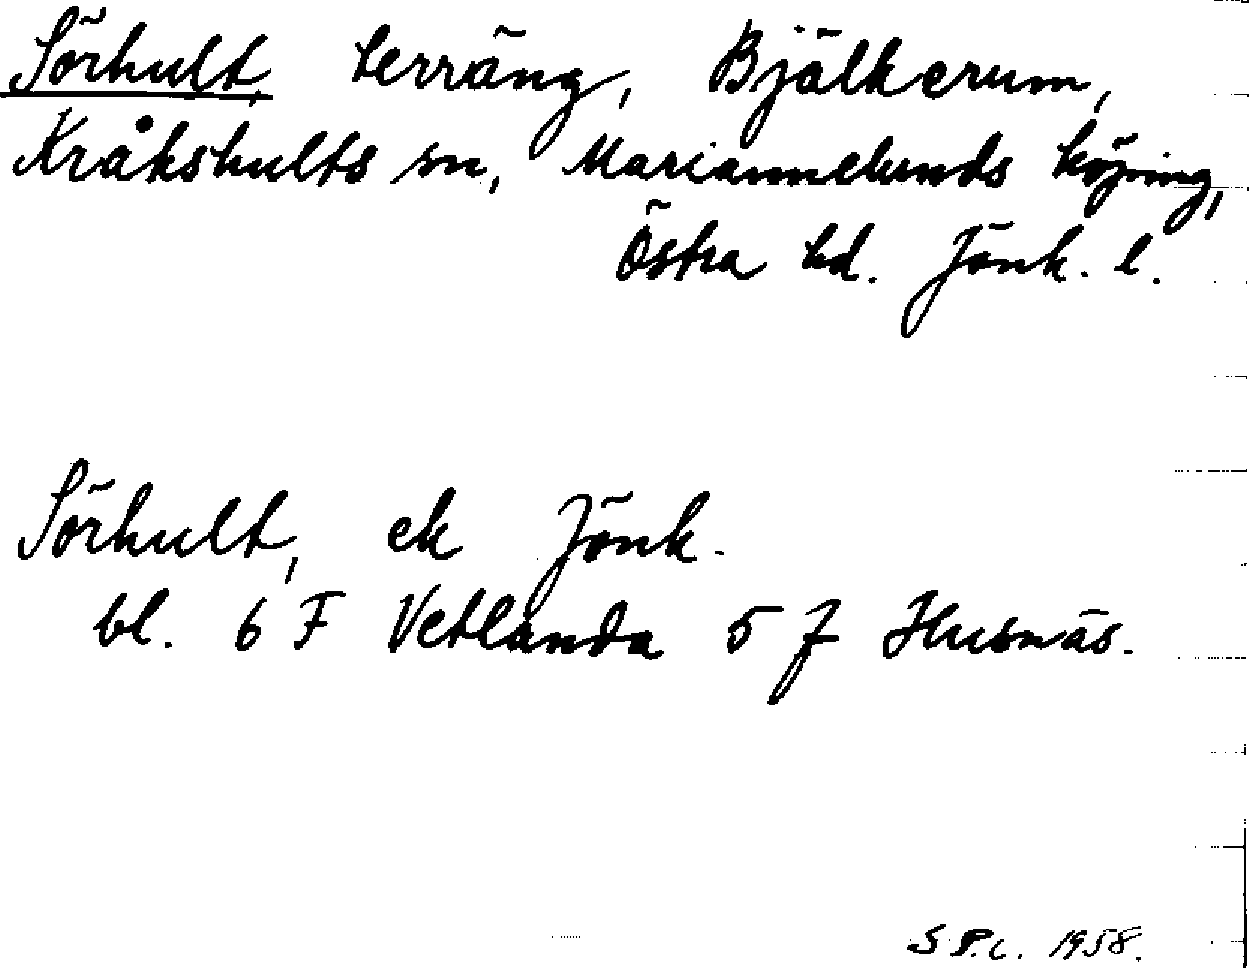 Sörhult, terräng, Bjälkerum,
Kråkshults sn, Mariannelunds köping,
Östra hd. Jönk. l.
Sörhult, ek Jönk.
bl. 6 F Vetlanda 5 J Husnäs.
S.P.C. 1958.